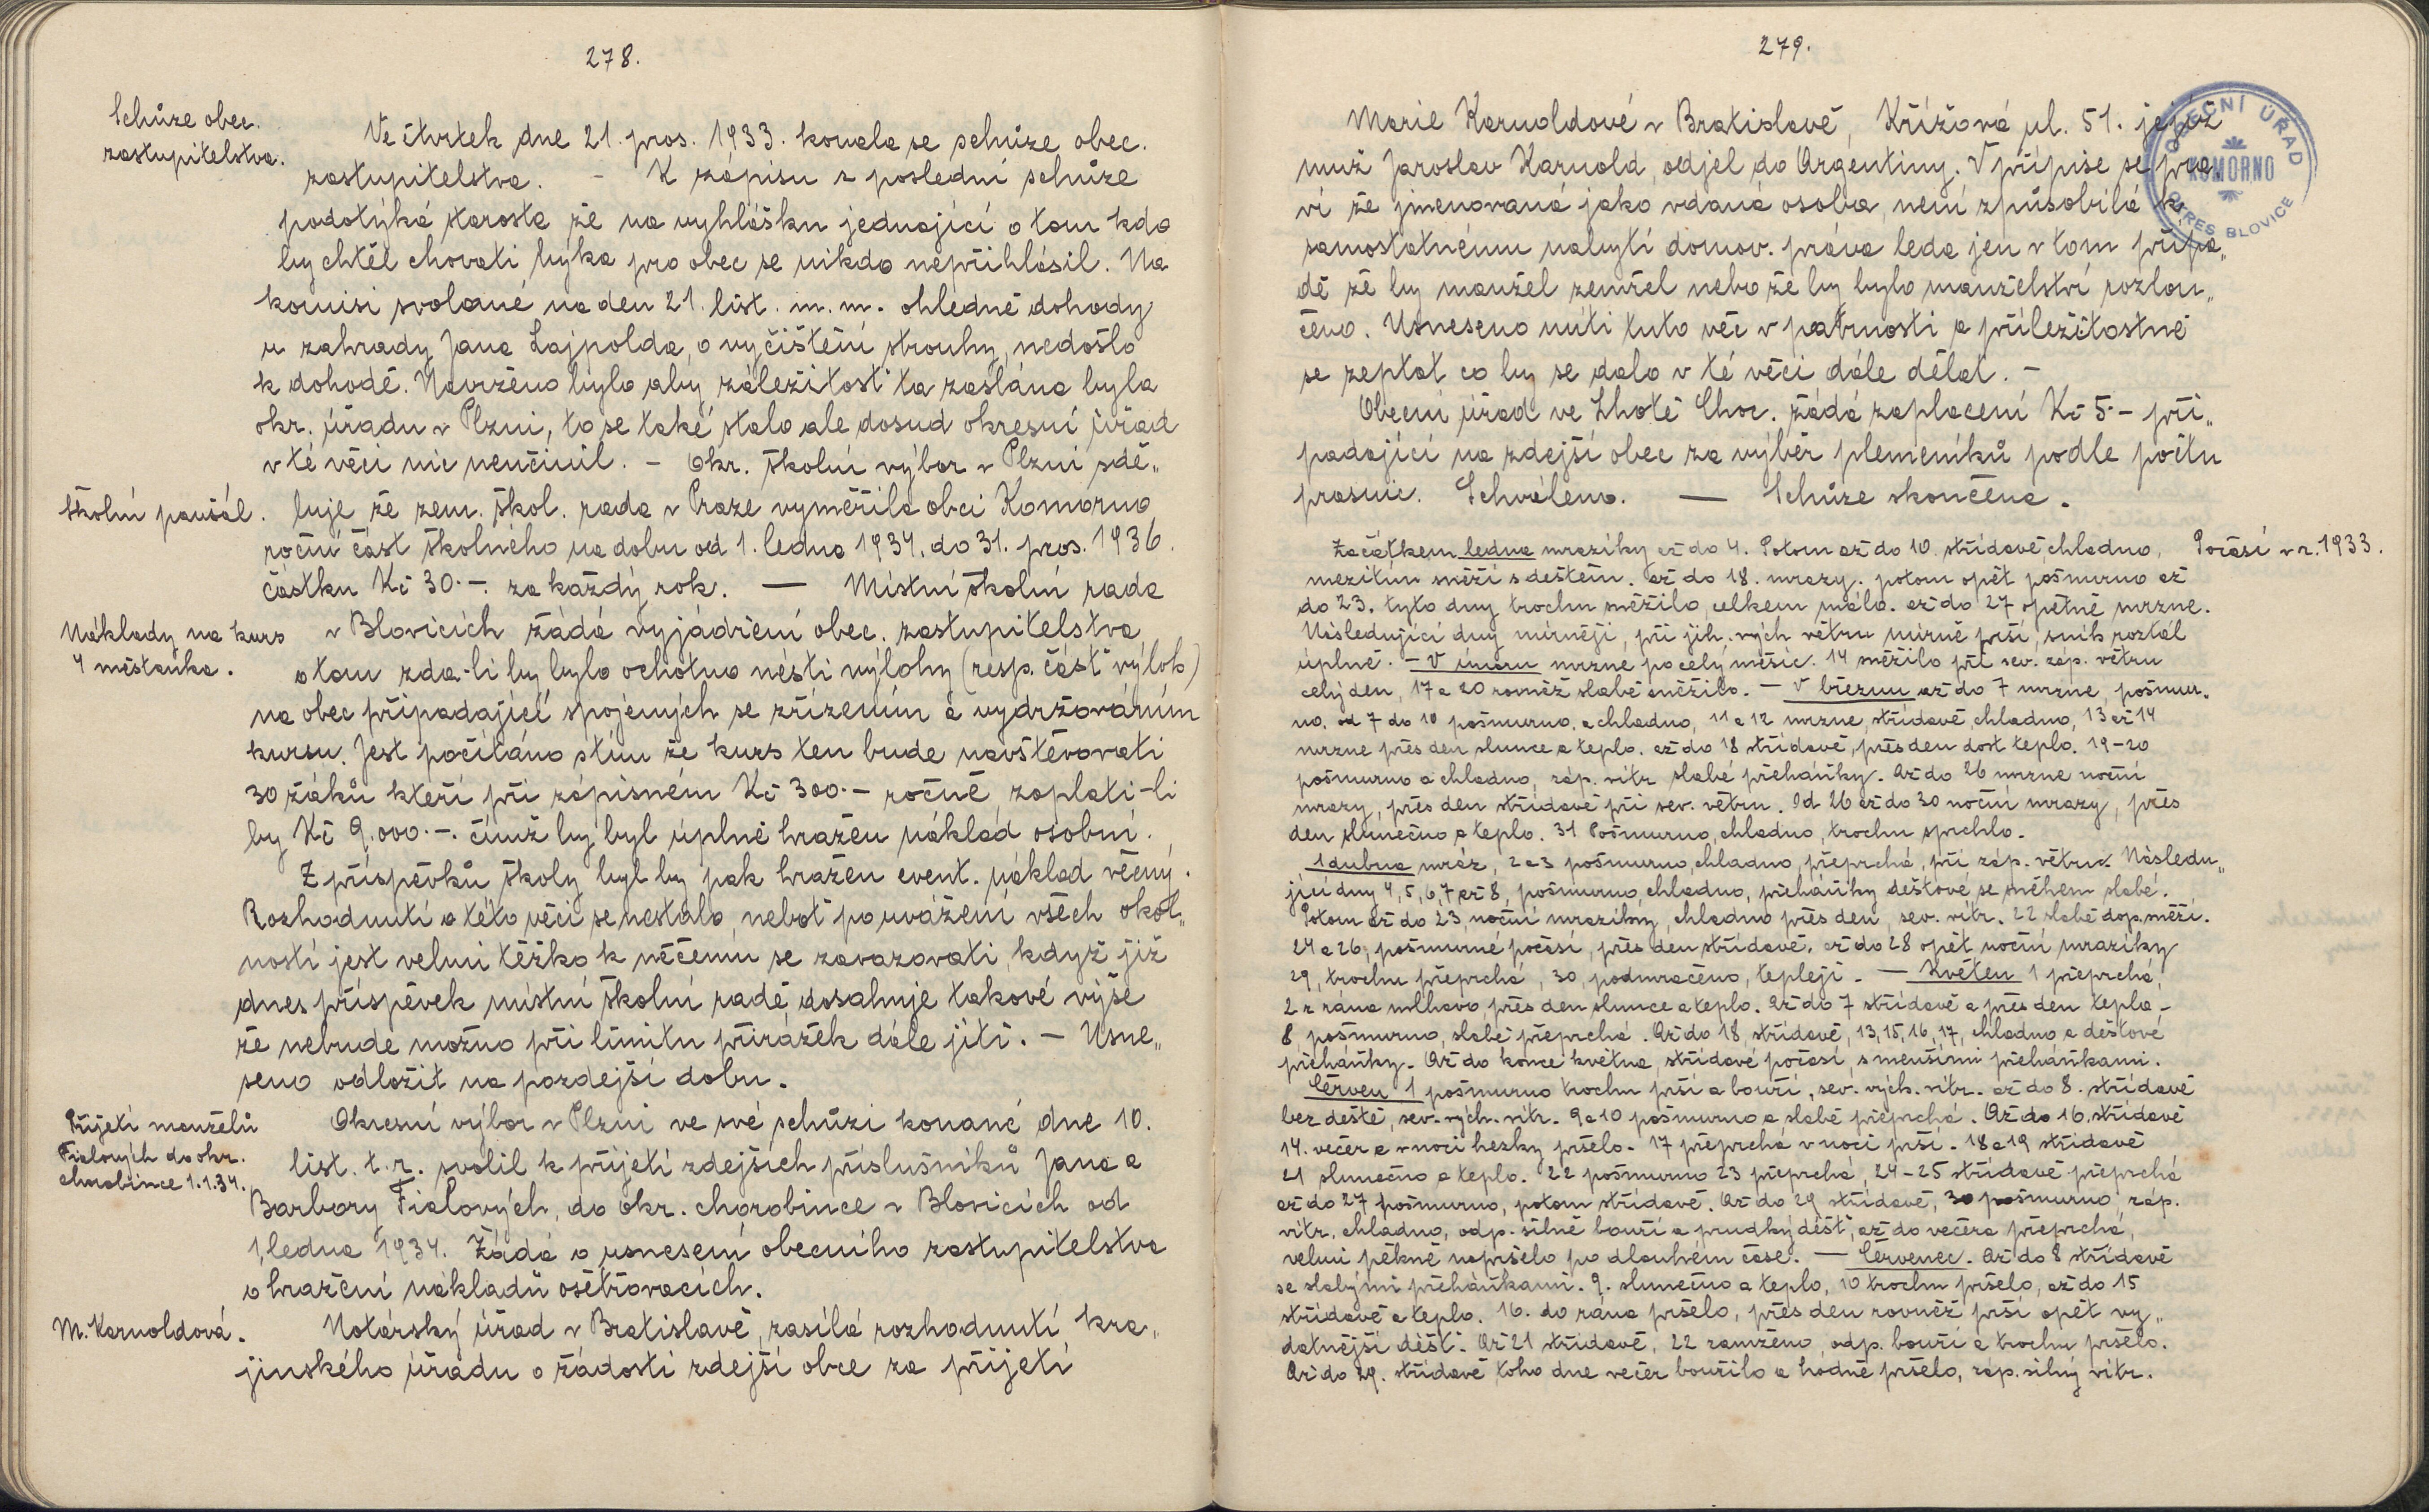 278.
Schůze obec.
zastupitelstva.
Ve čtvrtek dne 21. pros. 1933. konala se schůze obec.
zastupitelstva. - K zápisu z poslední schůze
podotýká starosta že na vyhlášku jednající o tom kdo
by chtěl chovati býka pro obec se nikdo nepřihlásil. Na
komisi svolané na den 21. list. m. m. ohledně dohody
u zahrady Jana Lajpolda, o vyčištění strouhy, nedošlo
k dohodě. Navrženo bylo aby záležitost ta zaslána byla
okr. úřadu v Plzni, to se také stalo ale dosud okresní úřad
v té věci nic neučinil. - Okr. školní výbor v Plzni sdě„
Školní paušál.
luje že zem. škol. rada v Praze vyměřila obci Komorno
roční část školného na dobu od 1. ledna 1934. do 31. pros. 1936.
částku Kč 30.-. za každý rok. — Místní školní rada
Náklady na kurs
4 měšťanka.
v Blovicích žádá vyjádření obec. zastupitelstva
o tom zda-li by bylo ochotno nésti výlohy (resp. část výloh)
na obec připadající spojených se zřízením a vydržováním
kursu. Jest počítáno s tím že kurs ten bude navštěvovati
30 žáků kteří při zápisném Kč 300.- ročně, zaplati-li
by Kč 9.000.-. čímž by byl úplně hražen náklad osobní.
Z příspěvků školy byl by pak hražen event. náklad věcný.
Rozhodnutí o této věci se nestalo, neboť po uvážení všech okol„
ností jest velmi těžko k něčemu se zavazovati, když již
dnes příspěvek místní školní radě, dosahuje takové výše
že nebude možno při limitu přirážek dále jíti. - Usne„
seno odložit na pozdejší dobu.
Přijetí manželů
Fialových do okr.
chorobince 1.1.34.
Okresní výbor v Plzni ve své schůzi konané dne 10.
list. t. r. svolil k přijetí zdejších příslušníků Jana a
Barbory Fialových, do okr. chorobince v Blovicích od
1, ledna 1934. Žádá o usnesení obecního zastupitelstva
o hražení nákladů ošetřovacích.
M. Karnoldová.
Notářský úřad v Bratislavě, zasílá rozhodnutí kra„
jinského úřadu o žádosti zdejší obce za přijetí
279.
OBECNÍ ÚŘAD
KOMORNO
OKRES BLOVICE
Marie Karnoldové v Bratislavě, Křížová ul. 51. jejíž
muž Jaroslav Karnold, odjel do Argentiny. V přípise se pra„
ví že jmenovaná jako vdaná osoba, není způsobilá k
samostatnému nabytí domov. práva leda jen v tom přípa„
dě že by manžel zemřel nebo že by bylo manželství rozlou„
čeno. Usneseno míti tuto věc v patrnosti a příležitostně
se zeptat co by se dalo v té věci dále dělat. -
Obecní úřad ve Lhotě Choc. žádá zaplacení Kč 5.- při„
padající na zdejší obec za výběr plemeníků podle počtu
prasnic. Schváleno. — Schůze skončena.
Počasí v r. 1933.
Začátkem ledna mrazíky až do 4. Potom až do 10. střídavě chladno,
mezitím sněží s deštěm. až do 18. mrazy. potom opět pošmurno až
do 23. tyto dny trochu sněžilo, celkem málo. až do 27 opětně mrzne.
Následující dny mírněji, při jih. vých. větru mírně prší, sníh roztál
úplně. - V únoru mrzne po celý měsíc. 14 sněžilo při sev. záp. větru
celý den, 17 a 20 rovněž slabě sněžilo. - V březnu až do 7 mrzne, pošmur„
no. od 7 do 10 pošmurno, a chladno, 11 a 12 mrzne, střídavě, chladno, 13 až 14
mrzne přes den slunce a teplo. až do 18 střídavě, přes den dost teplo. 19-20
pošmurno a chladno, záp. vítr slabé přeháňky. Až do 26 mrzne noční
mrazy, přes den střídavě při sev. větru. Od 26 až do 30 noční mrazy, přes
den slunečno a teplo. 31 Pošmurno, chladno, trochu sprchlo.
1 dubna mráz, 2 a 3 pošmurno, chladno, přeprchá, při záp. větru. Následu„
jící dny 4, 5, 6, 7 až 8, pošmurno, chladno, přeháňky dešťové se sněhem slabé.
Potom až do 23, noční mrazíky, chladno přes den, sev. vítr. 22 slabě dop. sněží.
24 a 26, pošmurné počasí, přes den střídavě. až do 28 opět noční mrazíky
29, trochu přeprchá, 30, podmračeno, tepleji. — Květen 1 přeprchá,
2 z rána mlhavo, přes den slunce a teplo. Až do 7 střídavě a přes den teplo -
8, pošmurno, slabě přeprchá. Až do 18, střídavě, 13, 15, 16, 17, chladno a dešťové
přeháňky. Až do konce května, střídavé počasí, s menšími přeháňkami.
Červen 1 pošmurno trochu prší a bouří, sev. vých. vítr. až do 8. střídavě
bez deště, sev. vých. vítr. 9 a 10 pošmurno a slabě přeprchá. Až do 16. střídavě
14. večer a v noci hezky pršelo. 17 přeprchá v noci prší. 18 a 19 střídavě
21 slunečno a teplo. 22 pošmurno 23 přeprchá, 24-25 střídavě přeprchá
až do 27 pošmurno, potom střídavě. Až do 29 střídavě, 30 pošmurno, záp.
vítr, chladno, odp. silně bouří a prudký déšť, až do večera přeprchá,
velmi pěkně napršelo po dlouhém čase. — Červenec. Až do 8 střídavě
se slabými přeháňkami. 9. slunečno a teplo, 10 trochu pršelo, až do 15
střídavě a teplo. 16. do rána pršelo, přes den rovněž prší opět vy„
datnější déšť. Až 21 střídavě, 22 zamženo, odp. bouří a trochu pršelo.
Až do 29. střídavě toho dne večer bouřilo a hodně pršelo, záp. silný vítr.